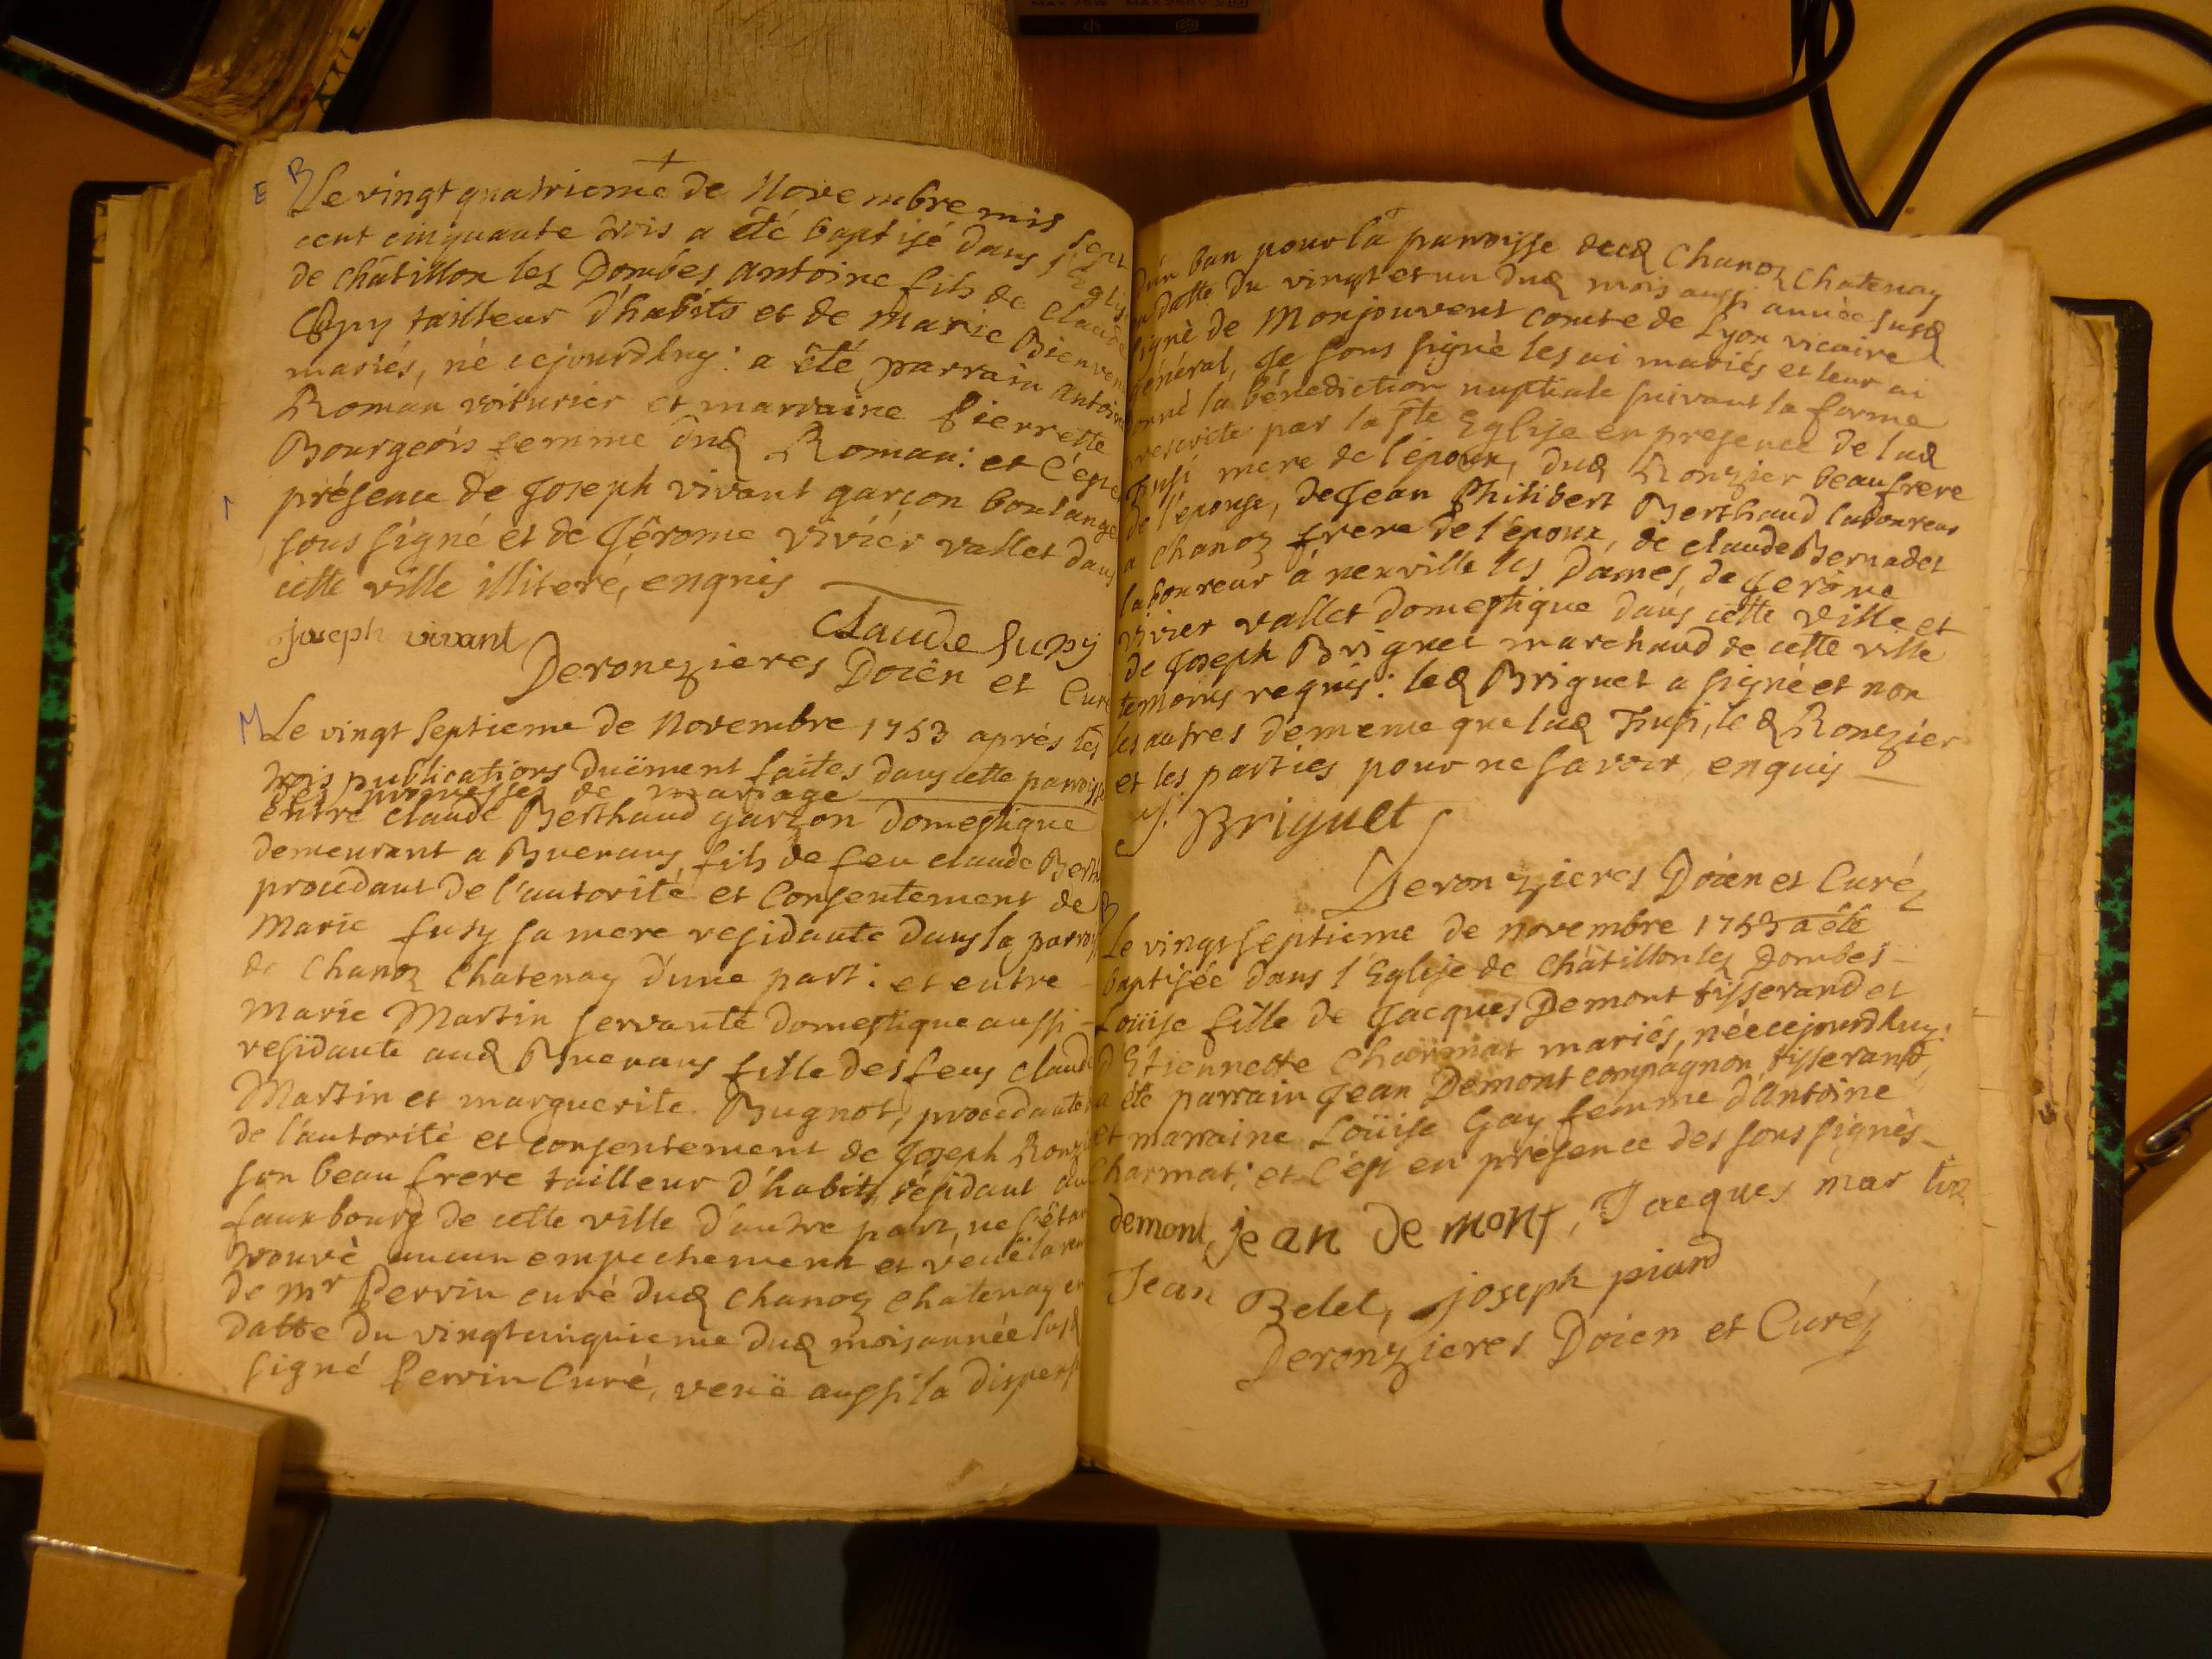 E B Le vingt quatrieme de Novembre mis sept
cent cinquante trois a été baptisé dans l'Eglise
de châtillon les Dombes antoine fils de claude
tailleur d'habits et de Marie Bienven
mariés, né cejourdhuy : a été parrain antoine
Roman voiturier et marraine Pierrette
Bourgeois femme dud Roman : et c'est en
présence de Joseph vivant garcon boulange
sous signé et de Jérome vivier vallet dans
cette ville illiteré, enquis
Joseph vivant claude Supy
Deronzieres Doïen et Curé
M Le vingt septieme de Novembre 1753 aprés les
trois publications duëment faites dans cette paroisse
des promesses de mariage
entre claude Berthaud garzon domestique
demeurant a Buenans fils de feu claude Berth
procedant de l'autorité et consentement de
Marie fusy sa mere residante dans la parroi
de Chanoz Chatenay d'une part : et entre
Marie Martin servante domestique aussi
residante aud Buenans fille des feus claude
Martin et marguerite Bugnot, procedante
de l'autorité et consentement de Joseph Ronzi
son beau frere tailleur d'habits, résidant au
fauxbourg de cette ville d'autre part, ne s'étant
trouvé aucun empechement et veüe la rem
de mr Perrin curé dud Chanoz Chatenay en
datte du vingtcinquieme dud mois année susd
signé Perrin Curé, veuë aussi la dispense
d'un ban pour la parroisse decd Chanoz Chatenay
en datte du vingt et un dud mois aussi année susd
signé de Monjouvent comte de Lyon vicaire
général, Je sous signé les ai mariés et leur ai
donné la bénediction nuptiale suivant la forme
prescrite par la Ste Eglise en presence de lad
Fusi mere de l'époux, dud Ronzier beaufrere
de l'épouse, de Jean Philibert Berthaud laboureur
a Chanoz frere de l'époux, de claude Bernadet
laboureur á neuville les Dames, de Jerôme
vivier vallet domestique dans cette ville et
de Joseph Briguet marchand de cette ville
temoins requis : led Briguet a signé et non
les autres demême que lad Fusi, le d Ronzier
et les parties pour ne savoir, enquis
J. Briguet
Deronzieres Doïen et Curé
B
Le vingt septieme de novembre 1753 a été
baptisée dans l'Eglise de Châtillon les Dombes
Loüise fille de Jacques Demont tisserand et
d'Etiennette Charmat mariés, née cejourdhuy :
a été parrain Jean Demont compagnon tisserand,
et marraine Loüise Gay femme d'Antoine
Charmat : et c'est en présence des sous signés
demont, jean de mont, Jacques mar tin
Jean Belet, joseph piard
Deronzieres Doïen et Curé